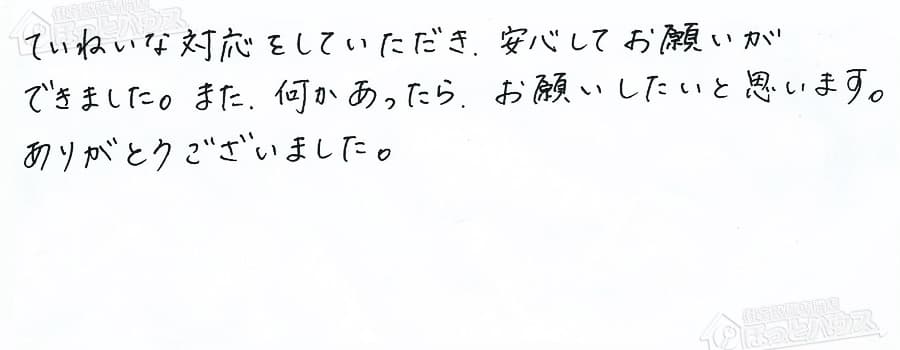 ていねいな対応をしていただき、安心してお願いが
できました。また、何かあったら、お願いしたいと思います。
ありがとうございました。
ほっとハウス